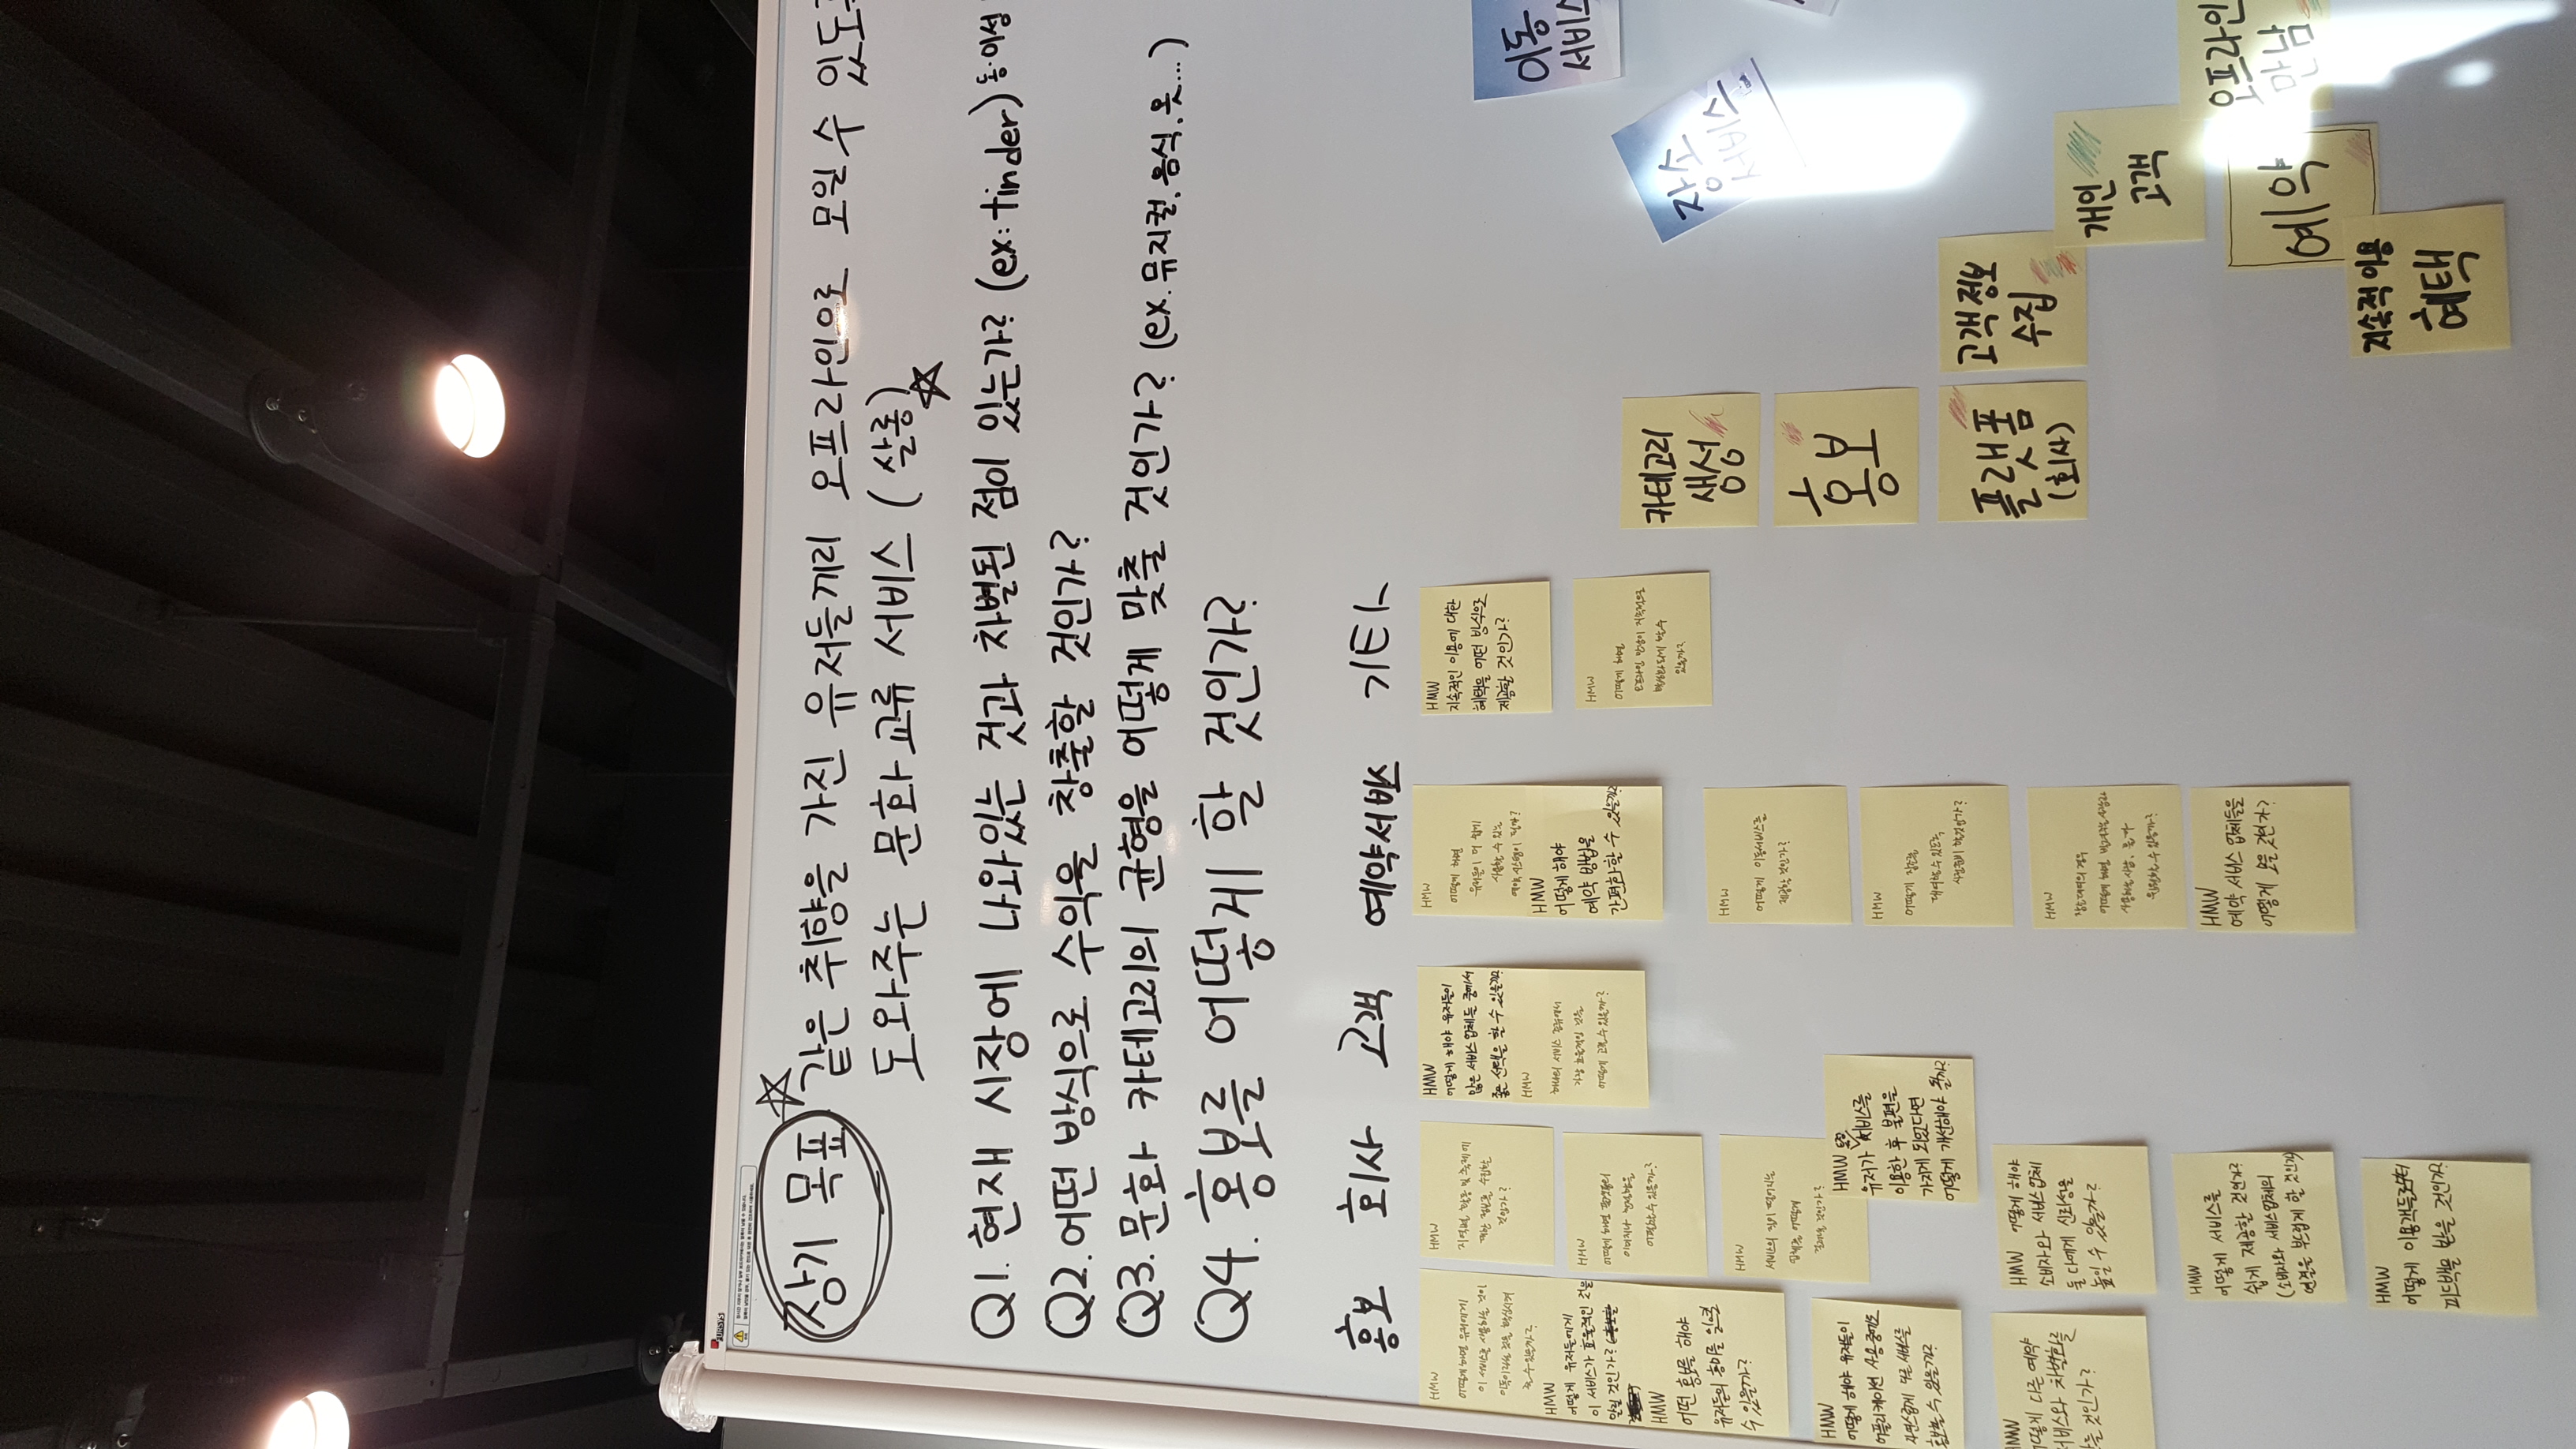 FURSYS
장기 목표 같은 취향을 가진 유저들끼리 오프라인으로 모일 수 있도
도와주는 문화교류 서비스 (살롱)
Q1. 현재 시장에 나와있는 것과 차별된 점이 있는가? (ex: tinder) 동·이성
Q2. 어떤 방식으로 수익을 창출할 것인가?
Q3. 문화 카테고리의 균형을 어떻게 맞출 것인가? (ex. 뮤지컬, 음식, 옷...)
Q4. 홍보를 어떻게 할 것인가?
홍보 회사 고객 예약서비스 기타
HMW
어떻게 하면 유저에게
이 서비스를 사용하는 것이
이득이라는 것을 확신시켜
줄 수 있을까?
HMW
어떻게 유저들에게
이 서비스가 효율적인 것을
알릴 것인가?
HMW
어떤 홍보를 해야
유저들의 흥미를 일으킬
수 있을까?
HMW
어떻게 해야 유저들이
어플리케이션 사용 중에도
자연스럽게 다른 서비스를
홍보할 수 있을까?
HMW
어떻게 다른 예약
서비스와 차별화를
것인가?
HMW
지역별 활동 및 축제에
대한 정보를 수집할
것인가?
HMW
어떻게 하면 플랫폼의
이미지나
어필할 수 있을까?
HMW
서비스의 질이 떨어지는
업체를 어떻게
걸러낼 것인가?
HMW
유저가 특정 서비스를
이용한 후 불편을
가지게 되었다면
어떻게 개선해야 될까?
HMW 어떻게 해야
소비자와 서비스 업체
둘 다에게 신뢰성을
높일 수 있을까?
HMW
어떻게 서비스를
쉽게 제공할 것인가?
(소비자와 서비스업체의
연결을 부드럽게 할 것인가)
HMW
어떻게 이용객들로부터
피드백을 받을 것인가?
HMW
어떻게 해야 유저들이
많은 서비스 업체들 중에서
좋은 선택을 할 수 있을까?
HMW
하나의 서비스 종류에서
가장 효율적인 것을
어떻게 고를 수 있을까?
HMW
어떻게 하면
유저들이 더 쉽게
사용할 수 있는
예약 시스템이 될까?
HMW
어떻게 해야
예약 방법을
간편화할 수 있을까?
HMW
어떻게 이동서비스를
제공할 것인가?
HMW
어떻게 장소를
대여할 수 있도록
할것인가?
HMW
장소대여의 경우
어떻게 하면 빌려주는 사람과
사용하는 사람, 둘 다
할 수 있을까?
HMW
예약 서비스 업체들을
어떻게 모을 것인가?
HMW
지속적인 이용에 대한
혜택을 어떤 방식으로
제공할 것인가?
HMW
어떻게 하면
오프라인 만남이 지속적으로
활성화되게 할 수
있을까?
카테고리
생성
홍보
플랫폼
(회사)
고객정보
수집
개인
고객
예약
오프라인
만남
지속적 이용
혜택
이동
서비스
장소
서비스